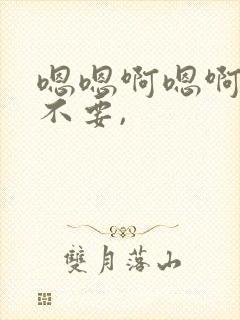 嗯嗯啊嗯啊
不要,
雙月落山